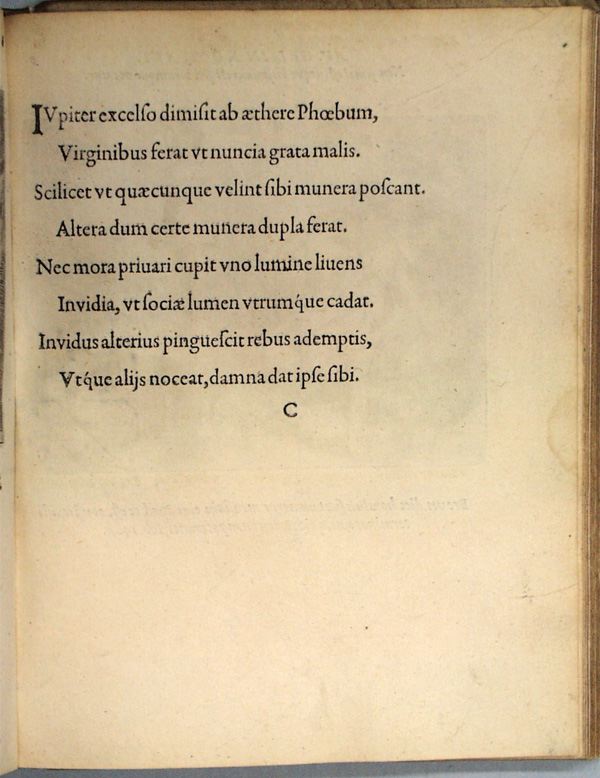 IVpiter excelſo dimiſit ab æthere Phœbum,
Virginibus ferat vt nuncia grata malis.
Scilicet vt quæcunque velint ſibi munera poſcant.
Altera dum certe munera dupla ferat.
Nec mora priuari cupit vno lumine liuens
Invidia, vt ſociæ lumen vtrumq́ue cadat.
Invidus alterius pingueſcit rebus ademptis,
Vtq́ue alijs noceat, damna dat ipſe ſibi.
C